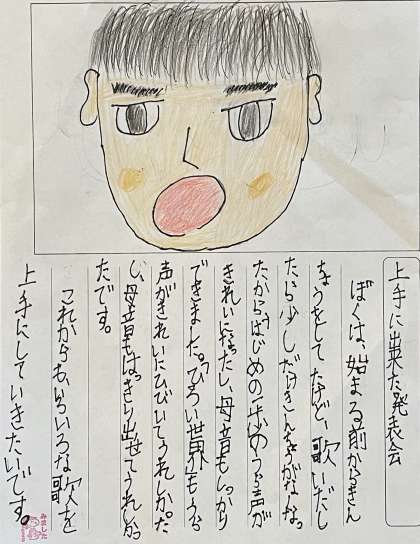 上手に出来た発表会
ぼくは、始まる前からきん
ちょうをしてたけど、歌いだし
たら少しだけきんちょうがなくなっ
たから、はじめの一歩のうら声が
きれいになったし、母音もしっかり
できました。ひろい世界もうら
声がきれいにひびいてうれしかった
し、母音もはっきり出せてうれしかっ
たです。
これからも、いろいろな歌を
上手にしていきたいです。
みました